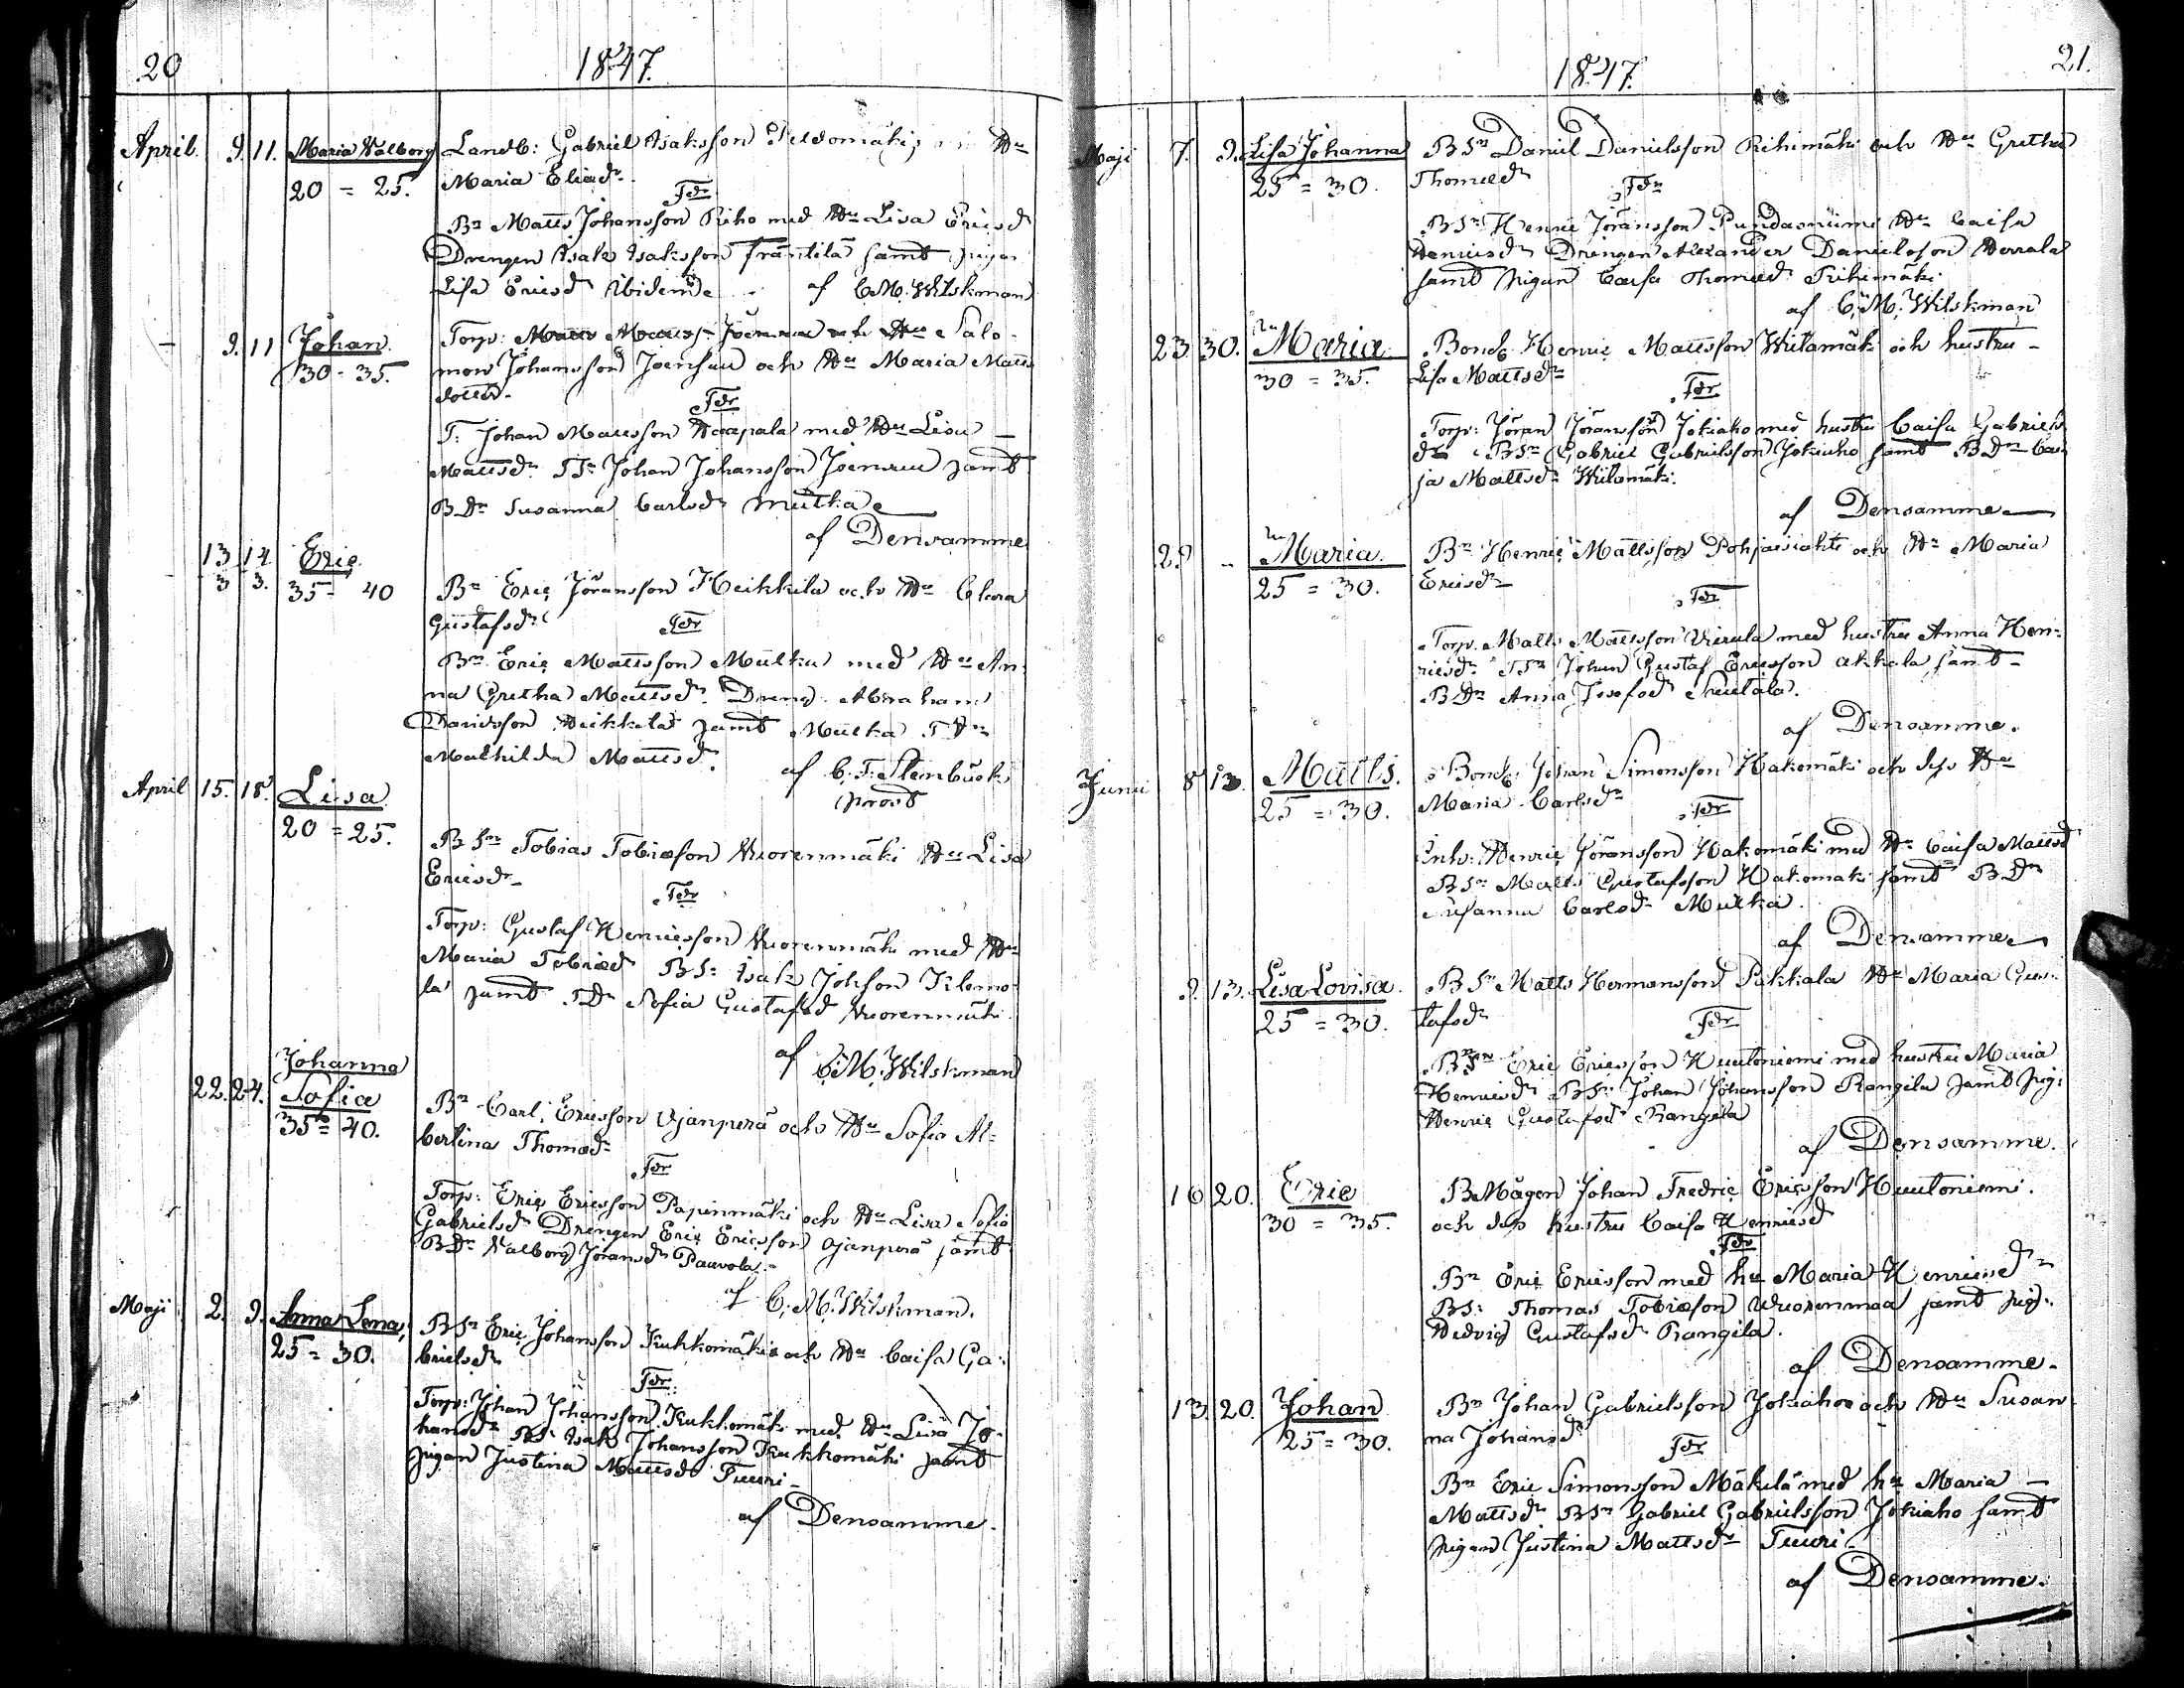 20
1847.
April. 9. 11. Maria Walborg Landb: Gabriel Isaksson Peldomäki, Hu
20 = 25. Maria Eliædr
Fdr
Bn Matts Johansson Riho med Hu Lisa Ericsd
Drengen Isak Isaksson Fräntilä samt pigan
Lisa Ericsd ibidem af C.M. Wilskman
9. 11 Johan Torp: Hu Salo-
30 - 35. mon Johansson Joensuu och Hu Maria Matts
dotter.
Fdr
T: Johan Mattsson Haapala med Hu Lisa
Mattsdr TSn Johan Johansson Joensuu samt
BDr Susanna Carlsdr Mutka
af Densamme
13 14 Eric
3 3. 35 = 40 Bn Eric Jöransson Heikkilä och Hu Clara
Gustafsdr
Fdr
Bn Eric Mattsson Mutka med Hu An-
na Gretha Mattsdr Dreng Abraham
Davidsson Heikkilä samt Mutka TDr
Mathilda Mattsd.
af C.F. Stenbäck
prost
April 15. 18. Lisa
20 = 25.
BSn Tobias Tobiæson Wuorenmäki Hu Lisa
Ericsdr
Fdr
Torp: Gustaf Henricsson Wuorenmäki med Hu
Maria Tobiæd BS: Isak Johsson Klemo-
la samt TDr Sofia Gustafsd Wuorenmäki
af C.M. Wilskman
Johanna
22. 24. Sofia
35 = 40. Bn Carl Ericsson Ojanperä och Hu Sofia Al-
bertina Thomædr
Fdr
Torp: Eric Ericsson Papinmäki och Hu Lisa Sofia
Gabrielsdr Drengen Eric Ericsson Ojanperä samt
BDr Walborg Jöransdr Pauvola.
af C. M. Wilskman.
Maji 2. 9. Anna Lena, BSn Eric Johansson Kukkomäki och Hu Caisa Ga-
25 = 30. brielsdr
Fdr
Torp: Johan Johansson Kukkomäki med Hu Lisa Jo-
hansdr BS: Isak Johansson Kukkomäki samt
pigan Justina Mattsdr Tuuri
af Densamme.
1847.
21.
Maji 7. 9. Lisa Johanna BSn Daniel Danielsson Rihimäki och Hu Gretha
25 = 30. Thomædr
Fdr
BSn Henric Jöransson Pundarniemi Hu Caisa
Henricsdr Drengen Alexander Danielsson Herrala
samt pigan Caisa Thomæd Rihimäki
af C. M. Wilskman
23. 30. Maria Bond: Henric Mattsson Wiitamäki och hustru
30 = 35. Lisa Mattsdr
Fdr
Torp: Jöran Jöransson Jokiaho med hustru Caisa Gabriels
dr BSn Gabriel Gabrielsson Jokiaho samt BDr Cai-
sa Mattsdr Wiitamäki.
af Densamme
29 - Maria. Bn Henric Mattsson Pohjaisahti och Hu Maria
25 = 30. Ericsdr
Fdr
Torp. Matts Mattsson Vierula med hustru Anna Hen-
ricsdr TSn Johan Gustaf Ericsson Akkala samt
BDr Anna Josefsdr Skuutala.
af Densamme.
Junii 8 13. Matts. Bond: Johan Simonsson Hakomäki och dess Hu
25 = 30. Maria Carlsdr
Fdr
Inh: Henric Jöransson Hakomäki med Hu Caisa Mattsd
BSn Matts Gustafsson Hakomäki samt BDr
Susanna Carlsdr Mutka.
af Densamme
9. 13. Lisa Lovisa. BSn Matts Hermansson Pakkala Hu Maria Gus-
25 = 30. tafsdr
Fdr
BSn Eric Ericsson Huutoniemi med hustru Maria
Henricsdr BS: Johan Johansson Rangila samt pig:
Henric Gustafsdr Rangila
af Densamme.
16 20. Eric B Mågen Johan Fredric Ericsson Huutoniemi.
30 = 35. och dess hustru Caisa Henricsd
Fdr
Bn Eric Ericsson med hu Maria Henricsdr
BS: Thomas Tobiæson Wuorenmaa samt pig:
Hedvig Gustafsdr Rangila.
af Densamme.
13. 20. Johan Bn Johan Gabrielsson Jokiaho och Hu Susan-
25 = 30. na Johansd
Fdr
Bn Eric Simonsson Mäkelä med hu Maria
Mattsdr BSn Gabriel Gabrielsson Jokiaho samt
pigan Justina Mattsdr Tuuri
af Densamme.